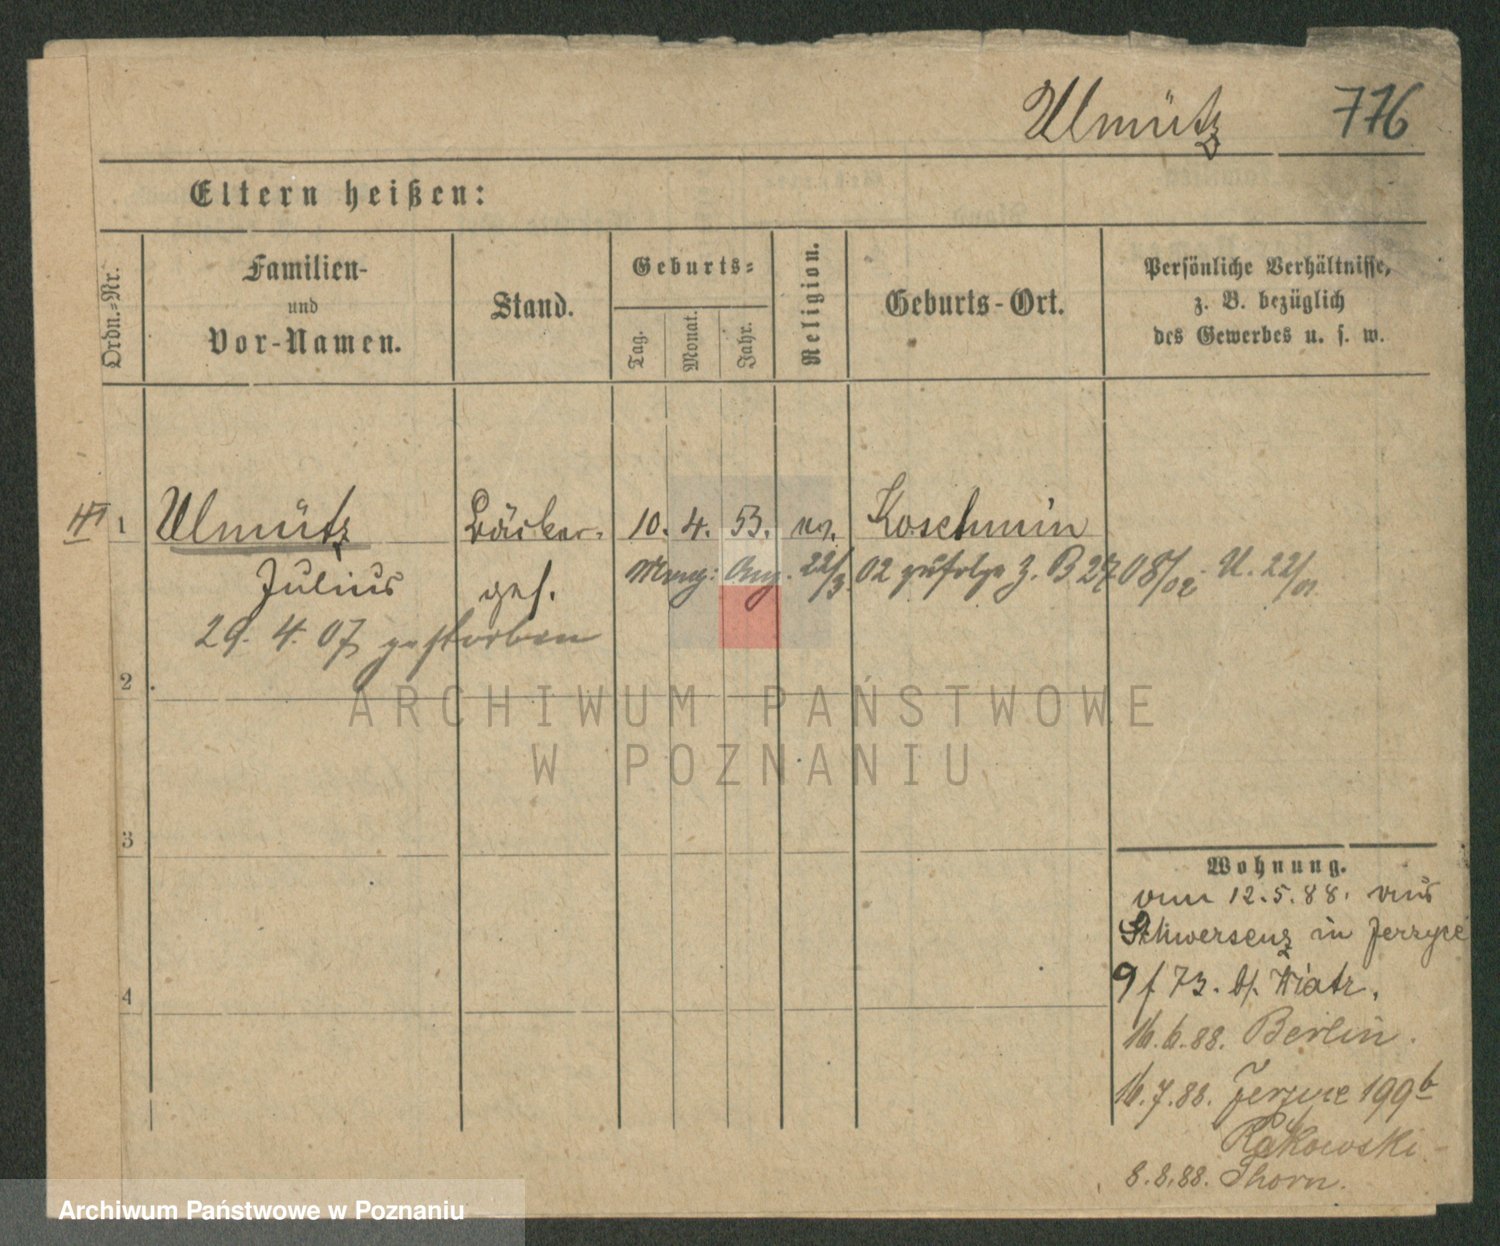 Ulmütz 776
Eltern heißen:
Ordn.-Nr.
Familien-
und
Vor-Namen.
Stand.
Geburts-
Tag.
Monat.
Jahr.
Religion.
Geburts-Ort.
Persönliche Verhältnisse,
z. B. bezüglich
des Gewerbes u. s. w.
1 Ulmütz Bäcker- 10. 4. 53. ev. Koschmin
Julius ges. 22/3. 02 zufolge J. B 2708/02 U. 22/01
29. 4. 07 gestorben
2
3
4
Wohnung.
vom 12.5.88. aus
Schwersenz in Jerzyce
9 f 73. b/. Wiatr.
16.6.88. Berlin.
16.7.88. Jerzyce 199b
Rakowski
8.8.88. Thorn.
ARCHIWUM PAŃSTWOWE
W POZNANIU
Archiwum Państwowe w Poznaniu